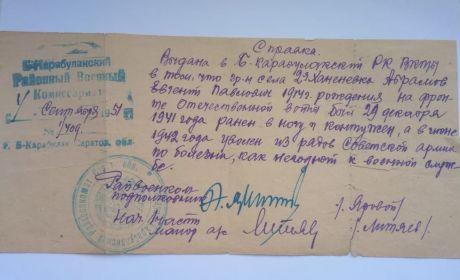 Б-Карабулакский
Районный Военный
Комиссариат
1 Сентября 1951
№ 1409
г. Б-Карабулак Саратов. обл.
Справка.
Выдана в Б. Карабулакский РК
в том, что гр-н села Ханеневка Абрамов
Евгений Павлович рождения на фрон-
те Отечественной войны был 29 декабря
1941 года ранен в ногу и контужен, а в июне
1942 года уволен из рядов Советской армии
по болезни, как негодный к военной служ-
бе.
Райвоенком
подполковник /. Яровой/
Нач. части
/. Литяев/